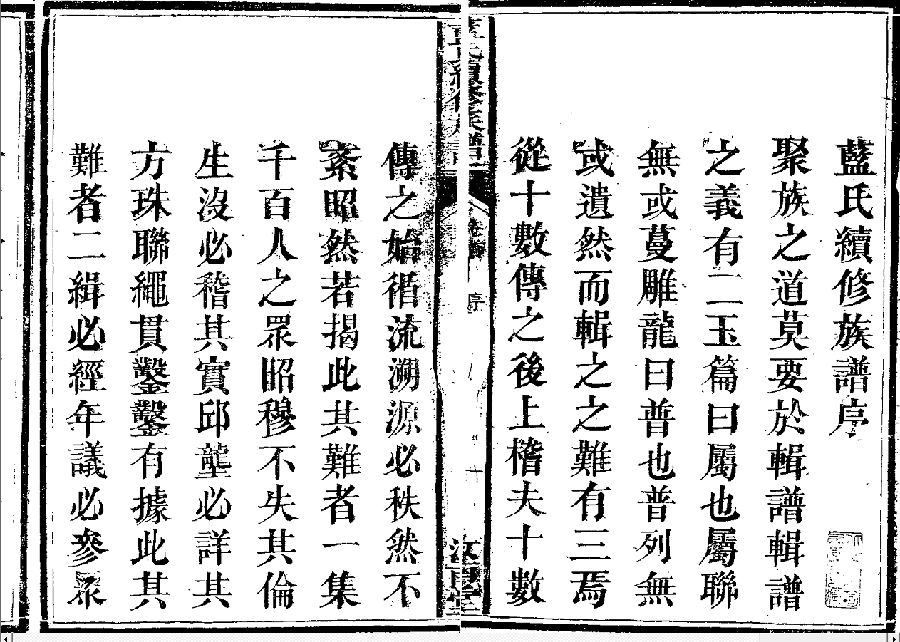 藍氏續修族譜序
聚族之道莫要於輯譜輯譜
之義有二玉篇曰屬也屬聯
無或蔓雕龍曰普也普列無
或遺然而輯之之難有三焉
從十數傳之後上稽夫十數
傳之始循流溯源必秩然不
紊昭然若揭此其難者一集
千百人之眾昭穆不失其倫
生沒必稽其實邱壟必詳其
方珠聯繩貫鑿鑿有據此其
難者二緝必經年議必參眾